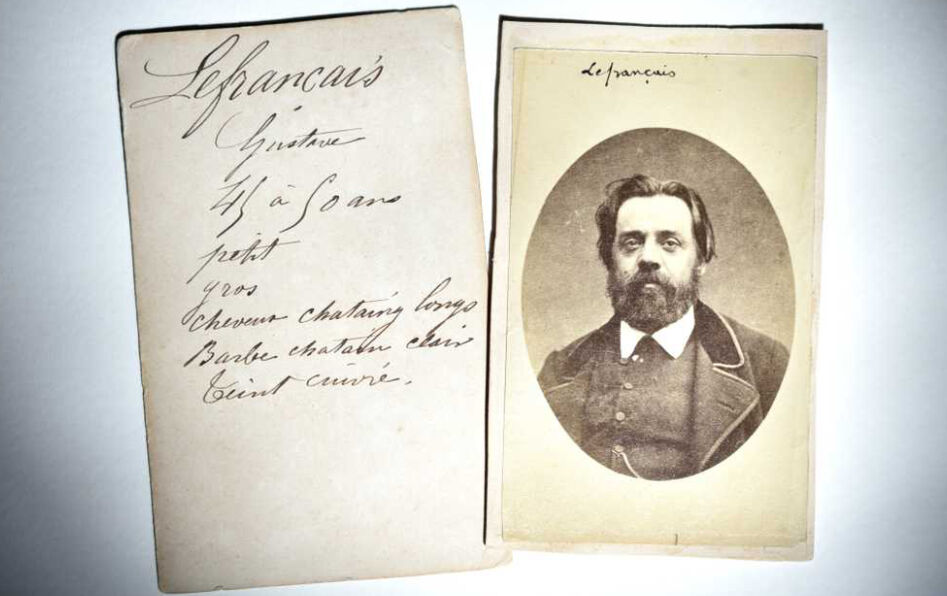 Lefrancais
Gustave
45 à 50 ans
petit
gros
cheveux chataing longs
Barbe chatain clair
Teint cuivré.
Lefrançais